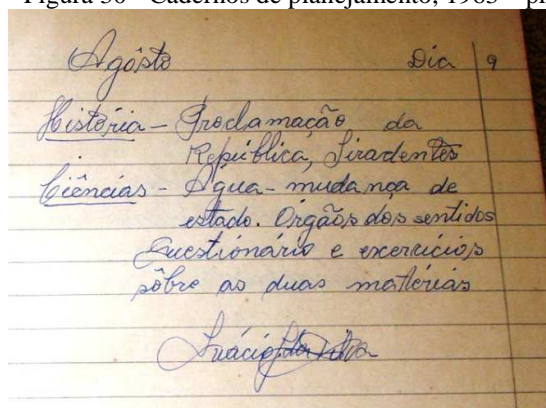 Figura 30 – Cadernos de planejamento, 1963 – pr
Agôsto Dia 9
História – Proclamação da
República, Tiradentes
Ciências - Água - mudança de
estado. Órgãos dos sentidos
Questionário e exercícios
sôbre as duas matérias
Inácio da Silva